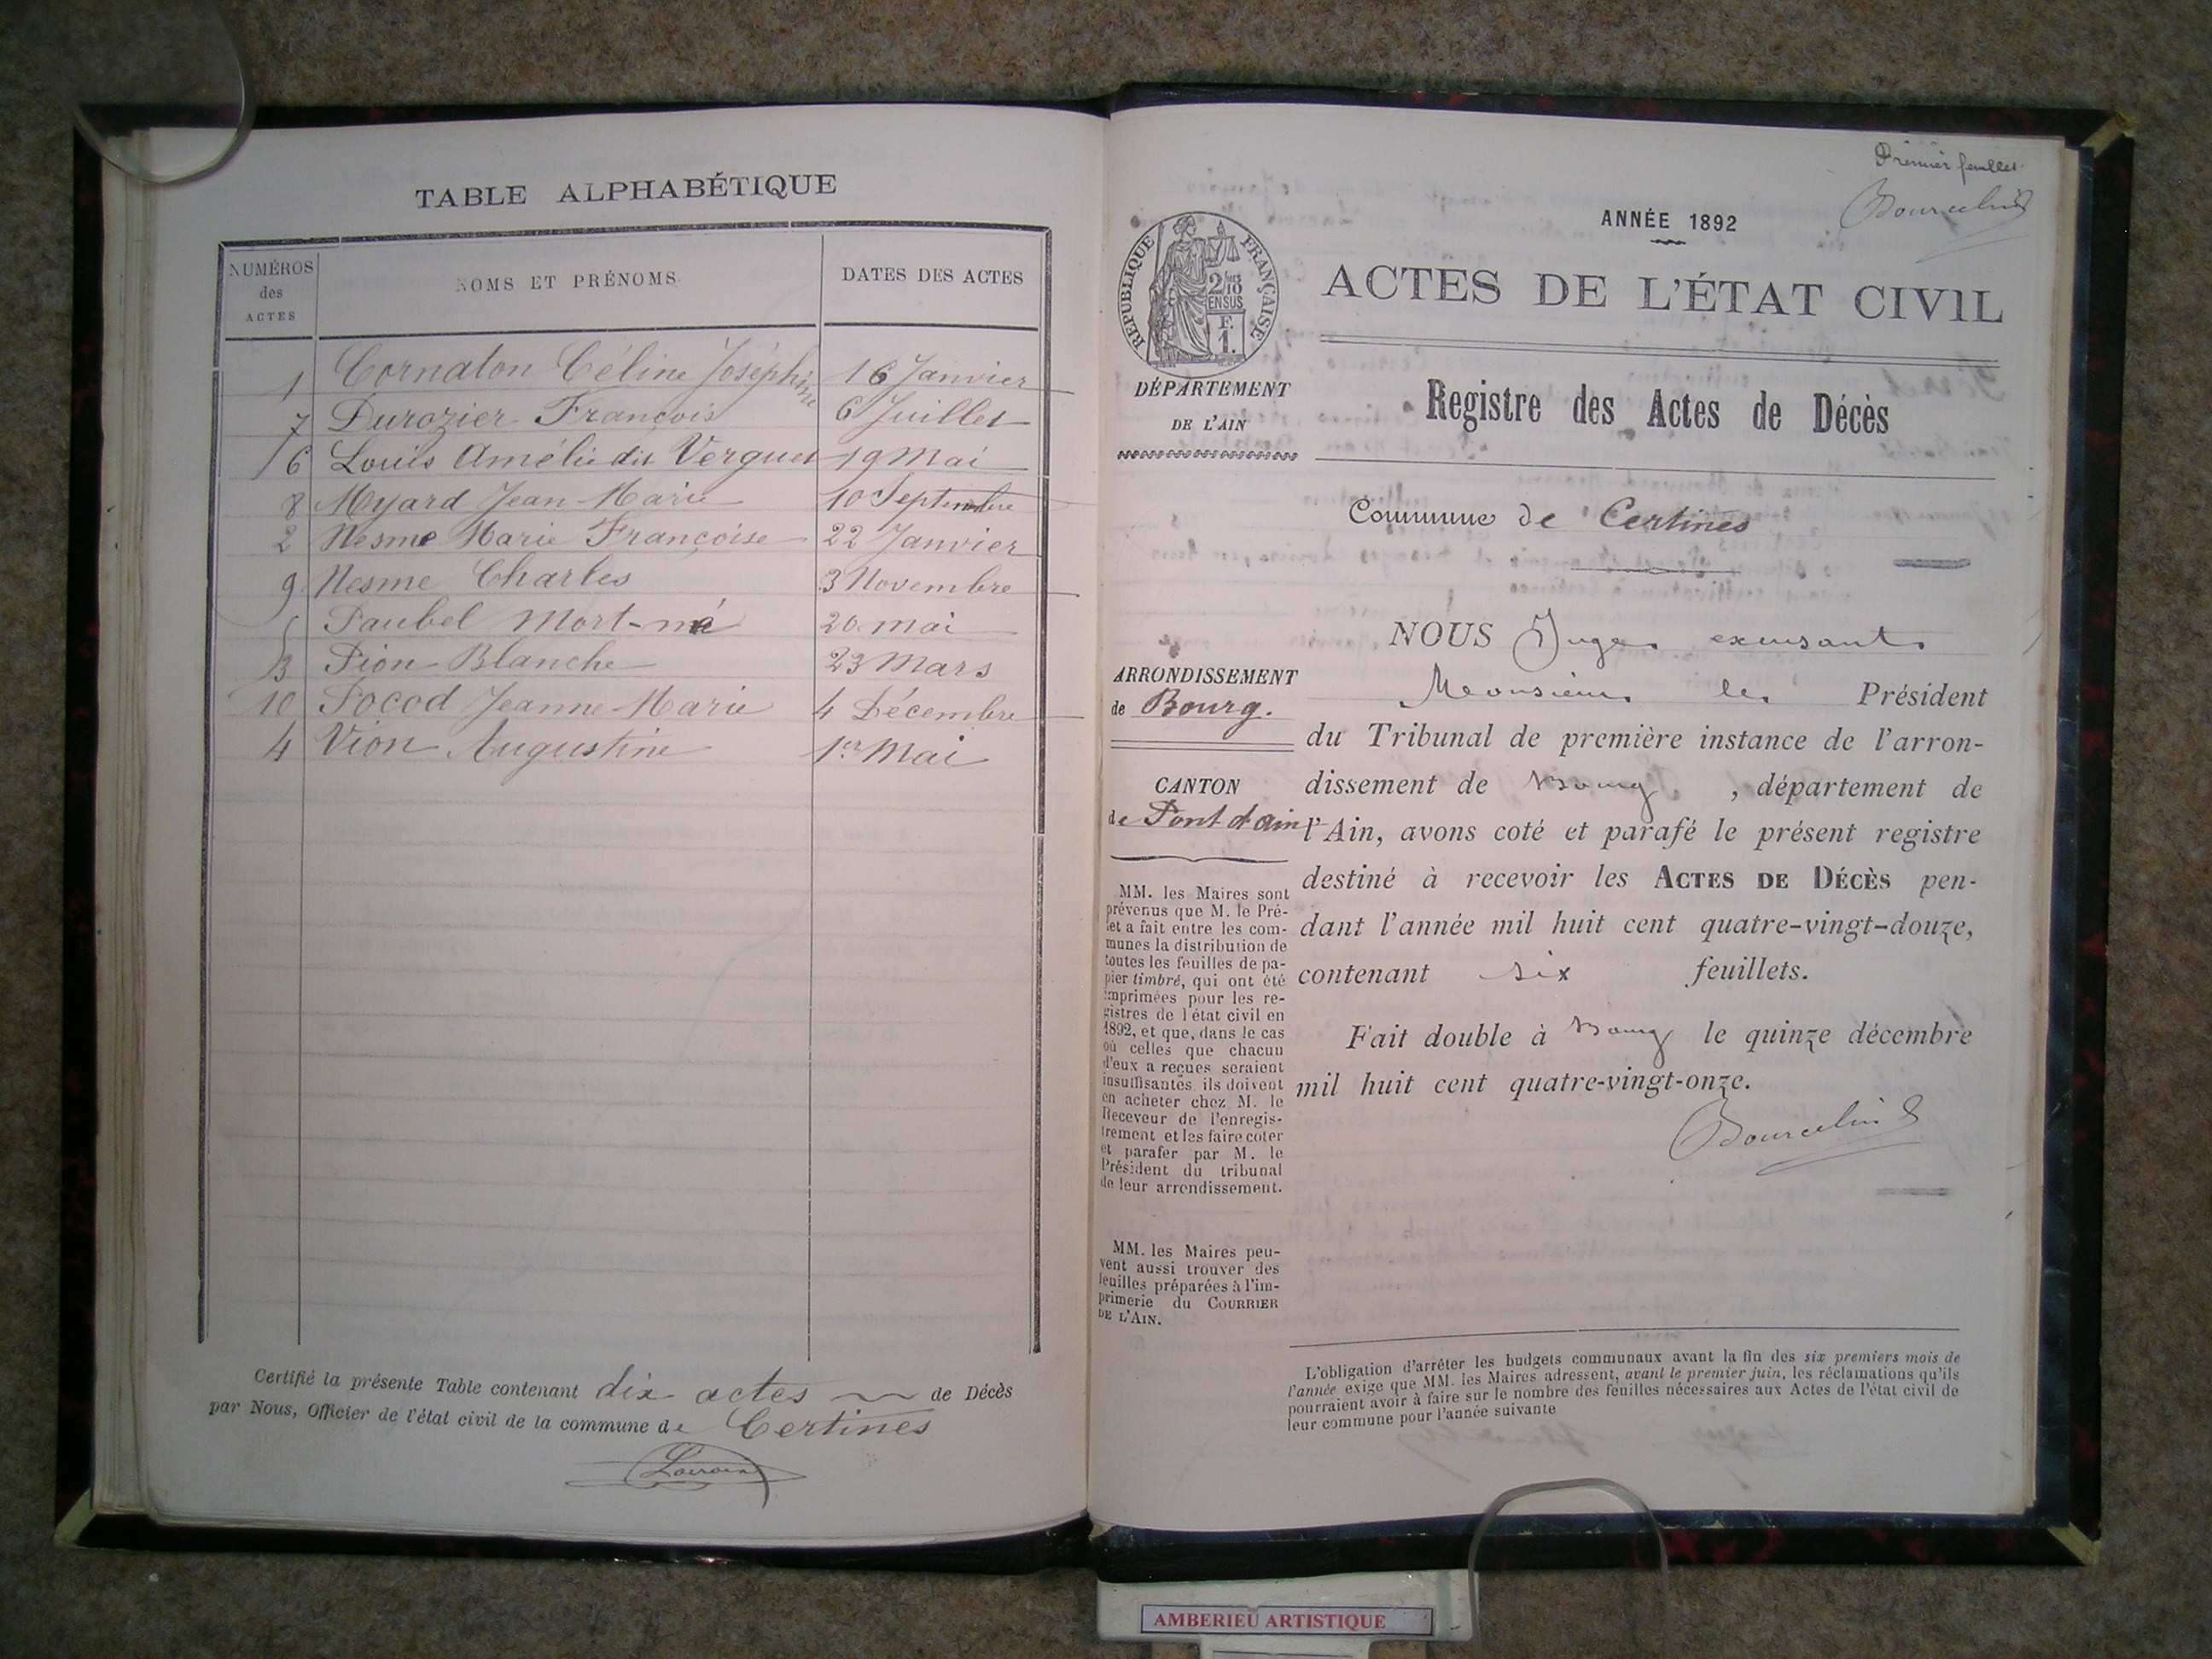 TABLE ALPHABÉTIQUE
NUMÉROS des ACTES
NOMS ET PRÉNOMS
DATES DES ACTES
1 Cornaton Céline Joséphine 16 Janvier
7 Durozier François 6 Juillet
6 Louis Amélie dit Vergues 19 Mai
8 Myard Jean-Marie 10 Septembre
2 Nesme Marie Françoise 22 Janvier
9 Nesme Charles 3 Novembre
5 Paubel Mort-né 20 mai
3 Pion Blanche 23 Mars
10 Pocod Jeanne-Marie 4 Décembre
4 Vion Augustine 1er Mai
Certifié la présente Table contenant dix actes de Décès
par Nous, Officier de l'état civil de la commune de Certines
Premier feuillet
RÉPUBLIQUE FRANÇAISE
2/10 EN SUS
F. 1.
ANNÉE 1892
ACTES DE L'ÉTAT CIVIL
DÉPARTEMENT
DE L'AIN
Registre des Actes de Décès
Commune de Certines
ARRONDISSEMENT
de Bourg.
CANTON
de Pont d'ain
MM. les Maires sont
prévenus que M. le Pré-
fet a fait entre les com-
munes la distribution de
toutes les feuilles de pa-
pier timbré, qui ont été
imprimées pour les re-
gistres de l'état civil en
1892, et que, dans le cas
où celles que chacun
d'eux a reçues seraient
insuffisantes ils doivent
en acheter chez M. le
Receveur de l'enregis-
trement et les faire coter
et parafer par M. le
Président du tribunal
de leur arrondissement.
MM. les Maires peu-
vent aussi trouver des
feuilles préparées à l'im-
primerie du COURRIER
DE L'AIN.
NOUS Juge
Monsieur le Président
du Tribunal de première instance de l'arron-
dissement de Bourg, département de
l'Ain, avons coté et parafé le présent registre
destiné à recevoir les ACTES DE DÉCÈS pen-
dant l'année mil huit cent quatre-vingt-douze,
contenant six feuillets.
Fait double à Bourg le quinze décembre
mil huit cent quatre-vingt-onze.
L'obligation d'arrêter les budgets communaux avant la fin des six premiers mois de
l'année exige que MM. les Maires adressent, avant le premier juin, les réclamations qu'ils
pourraient avoir à faire sur le nombre des feuilles nécessaires aux Actes de l'état civil de
leur commune pour l'année suivante
AMBERIEU ARTISTIQUE